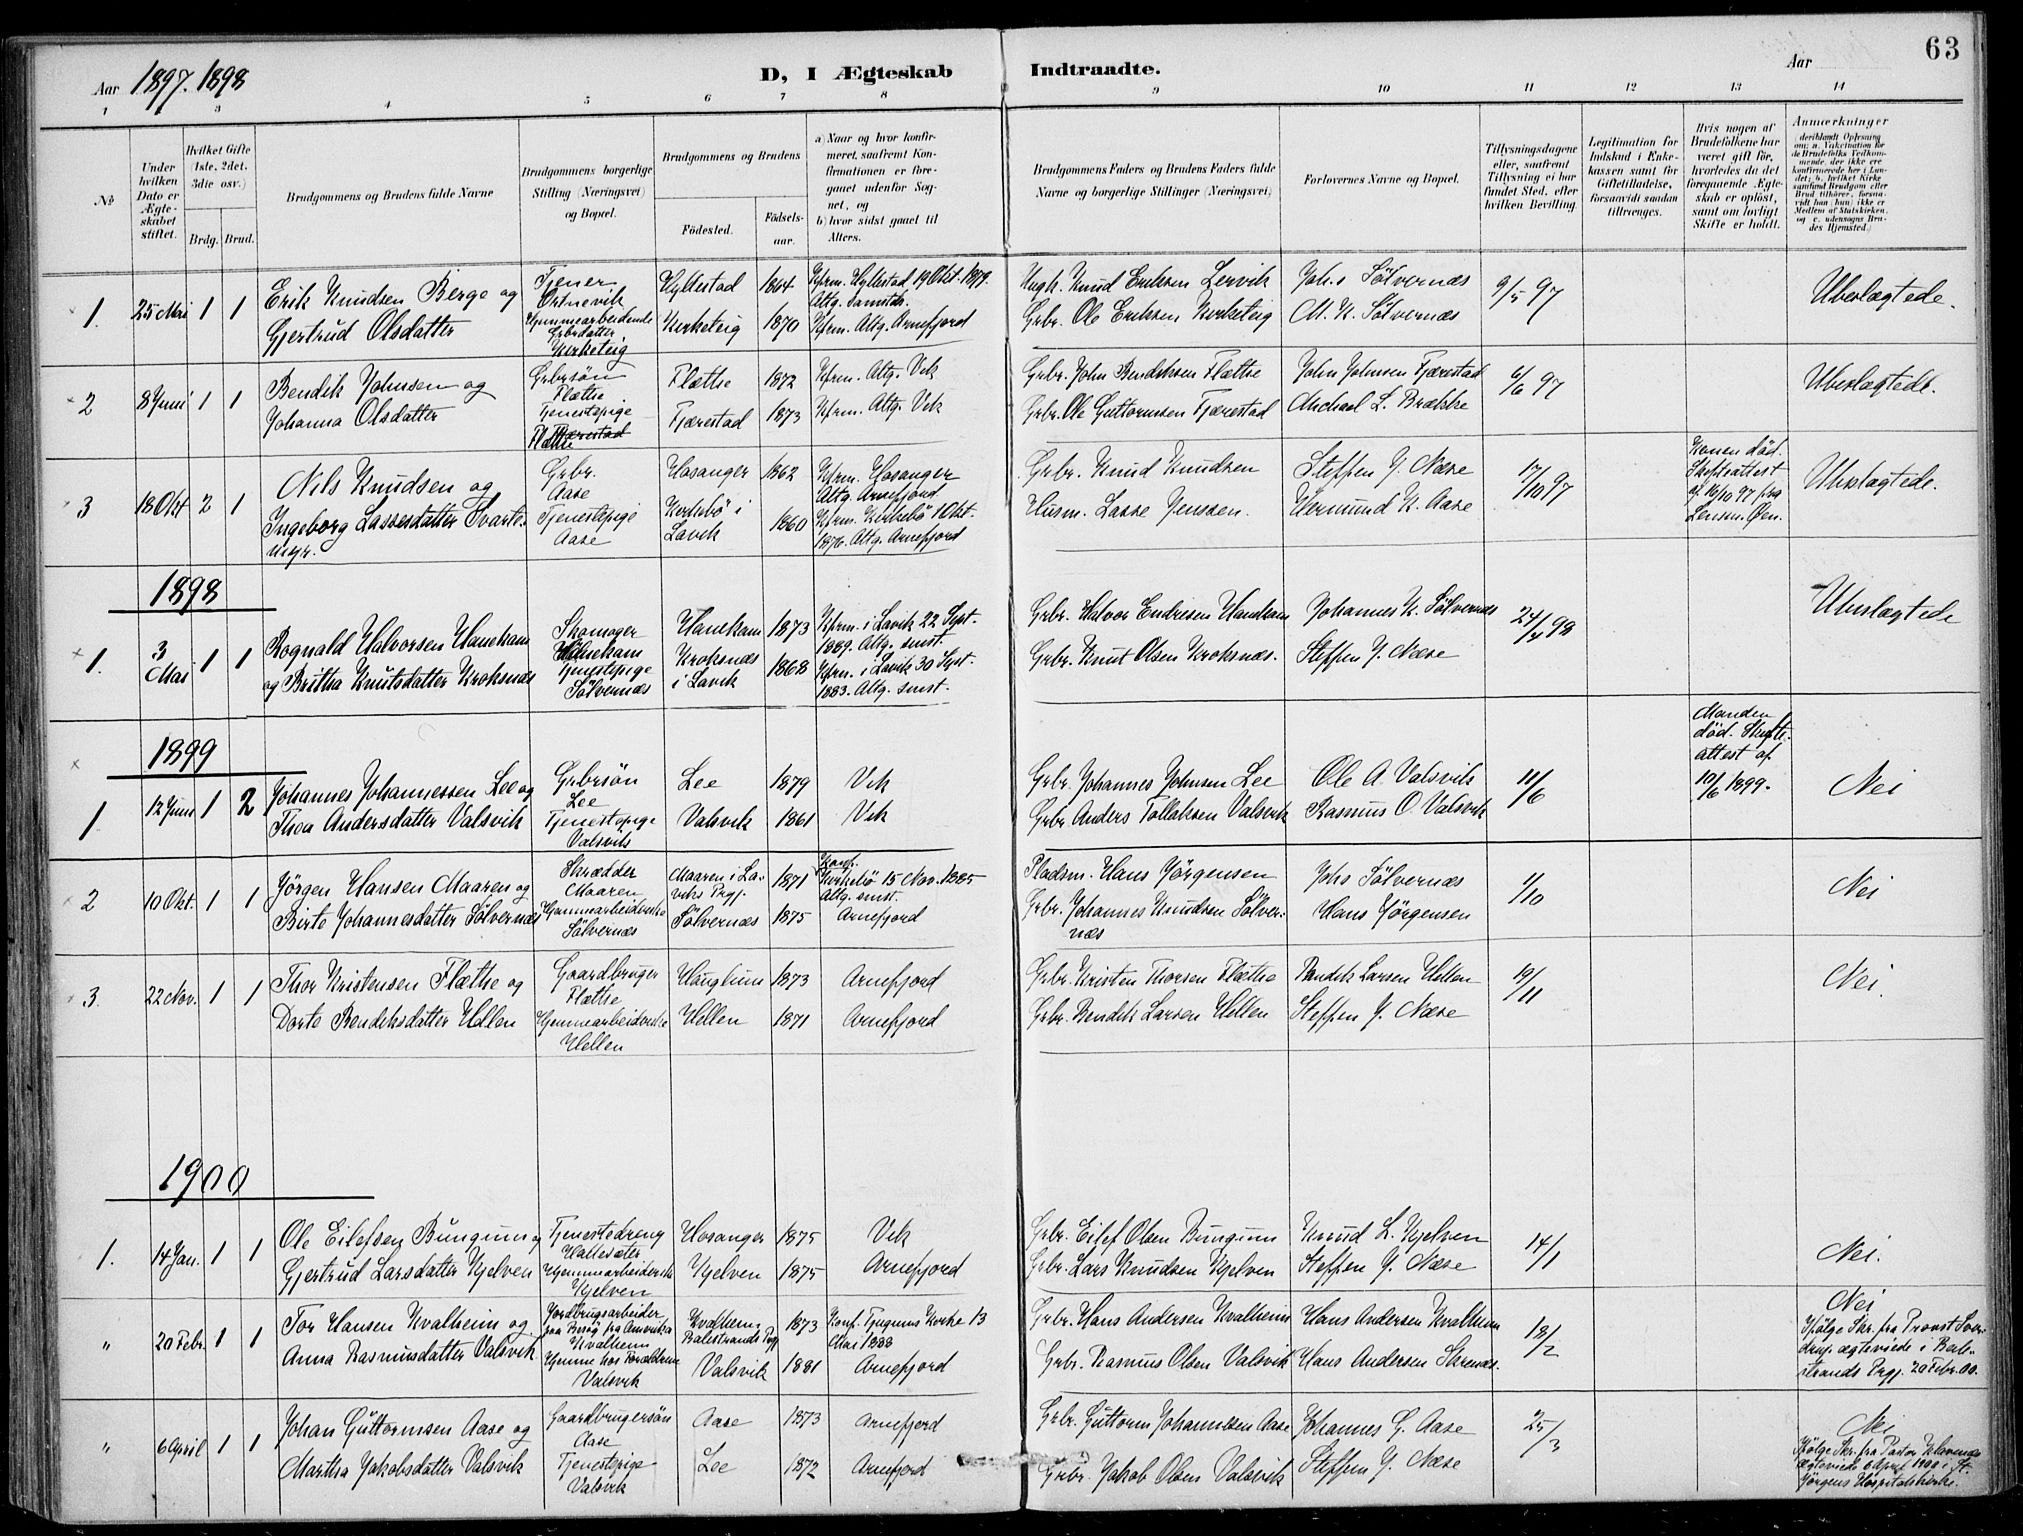 63
Aar 1897. 1898
D, I Ægteskab Indtraadte.
Aar
1 3 4 5 6 7 8 9 10 11 12 13 14
No
Under hvilken Dato er Ægteskabet stiftet.
Hvilket Gifte (1ste, 2det, 3die osv.)
Brdg. Brud.
Brudgommens og Brudens fulde Navne
Brudgommens borgerlige Stilling (Næringsvei) og Bopæl.
Brudgommens og Brudens
Fødested.
Fødselsaar.
a) Naar og hvor konfirmeret, saafremt Konfirmationen er foregaaet udenfor Sognet, og
b) hvor sidst gaaet til Alters.
Brudgommens Faders og Brudens Faders fulde Navne og borgerlige Stillinger (Næringsvei)
Forlovernes Navne og Bopæl.
Tillysningsdagene eller, saafremt Tillysning ei har fundet Sted, efter hvilken Bevilling.
Legitimation for Indskud i Enkekassen samt for Giftetilladelse, forsaavidt saadan tiltrænges.
Hvis nogen af Brudefolkene har været gift før, hvorledes da det foregaaende Ægteskab er opløst, samt om lovligt Skifte er holdt.
Anmærkninger
1. 25 Mai 1 1
Erik Knudsen Berge og
Gjertrud Olsdatter
Tjener
Ostnevik
Hjemmearbeidende
Grbrdatter
Kirketeig
Hyllestad 1864
Kirketeig 1870
Kfrm. Hyllestad 19 Okt. 1879.
Altg. Samstds.
Kfrm. Altg. Arnefjord
Ungk. Knud Eriksen Lervik
Grbr. Ole Eriksen Kirketeig
Johs Sølvernæs
M. K. Sølvernæs
9/5 97
Ubeslægtede.
2 8 Juni 1 1
Bendik Johnsen og
Johanna Olsdatter
Grbrsøn
Flæthe
Tjenestepige
Fjærestad
Flæthe
Flæthe 1872
Fjærestad 1873
Kfrm. Altg. Vik
Kfrm. Altg. Vik
Grbr. John Bendiksen Flæthe
Grbr. Ole Guttormsen Fjærestad
John Johnsen Fjærestad
Michael L. Brække
6/6 97
Ubeslægtede.
3 18 Okt 2 1
Nils Knudsen og
Ingeborg Lassesdatter Svarte-
myr.
Grbr.
Aase
Tjenestepige
Aase
Hosanger 1862
Kirkebø i
Lavik 1860
Kfrm. Hosanger
Altg. Arnefjord
Kfrm. Kirkebø 1 Okt.
1876. Altg. Arnefjord
Grbr. Knud Knudsen
Husm. Lasse Jenssen.
Steffen J. Næse
Hermund K. Aase
17/10 97
Konen død.
Skifteattest
af 16/10 97 fra
Lensm. Øen.
Ubeslægtede.
1898
1. 3 Mai 1 1
Rognald Halvorsen Hanekam
og Britha Knutsdatter Kroksnæs
Skomager
Hanekam
Tjenestepige
Sølvernæs
Hanekam 1873
Kroksnæs
i Lavik 1868
Kfrm. i Lavik 22 Sept.
1889. Altg. smst.
Kfrm. i Lavik 30 Sept.
1883. Altg. smst.
Grbr. Halvor Endresen Hanekam
Grbr. Knut Olsen Kroksnæs.
Johannes K. Sølvernæs
Steffen J. Næse
24/4 98
Ubeslægtede
1899
1 12 Juni 1 2
Johannes Johannessen Lee og
Thea Andersdatter Valsvik
Grbrsøn
Lee
Tjenestepige
Valsvik
Lee 1879
Valsvik 1861
Vik
Vik
Grbr. Johannes Johnsen Lee
Grbr. Anders Tollaksen Valsvik
Ole A. Valsvik
Rasmus O. Valsvik
11/6
Manden
død. Skifte-
attest af
10/6 1899.
Nei
2 10 Okt. 1 1
Jørgen Hansen Maaren og
Birte Johannesdatter Sølvernæs
Skrædder
Maaren
Hjemmearbeidende
Sølvernæs
Maaren i La-
viks Prgj. 1871
Sølvernæs 1875
Konf.
Kirkebø 15 Nov. 1885
Altg. smst.
Arnefjord
Pladsm. Hans Jørgensen
Grbr. Johannes Knudsen Sølver-
næs
Johs Sølvernæs
Hans Jørgensen
1/10
Nei
3. 22 Nov. 1 1
Thor Kristensen Flæthe og
Dorte Bendiksdatter Hellen
Gaardbruger
Flæthe
Hjemmearbeidende
Hellen
Hauglum 1873
Hellen 1871
Arnefjord
Arnefjord
Grbr. Kristen Thorsen Flæthe
Grbr. Bendik Larsen Hellen
Bendik Larsen Hellen
Steffen J. Næse
19/11
Nei.
1900
1. 14 Jan. 1 1
Ole Eilefsen Bungum og
Gjertrud Larsdatter Kjelven
Tjenestedreng
Hallesæter
Hjemmearbeidende
Kjelven
Hosanger 1875
Kjelven 1875
Vik
Arnefjord
Grbr. Eilef Olsen Bungum
Grbr. Lars Knudsen Kjelven
Knud L. Kjelven
Steffen J. Næse
14/1
Nei.
" 20 Febr. 1 1
Tor Hansen Kvalheim og
Anna Rasmusdatter Valsvik
Jordbrugsarbeider
paa Besøg fra Amerika
Kvalheim
Hjemme hos Forældrene
Valsvik
Kvalheim
Balestrands Prgj 1873
Valsvik 1881
Konf. Tjugums Kirke 13
Mai 1888
Arnefjord
Grbr. Hans Andersen Kvalheim
Grbr. Rasmus Olsen Valsvik
Hans Andersen Kvalheim
Hans Andersen Skrenæs.
18/2
Nei
Ifølge Skr. fra Provst Sver-
drup ægteviede i Bale-
strands Prgj. 20 Febr. 00.
" 6 April 1 1
Johan Guttormsen Aase og
Martha Jakobsdatter Valsvik
Gaardbrugersøn
Aase
Tjenestepige
Valsvik
Aase 1873
Lee 1872
Arnefjord
Arnefjord
Grbr. Guttorm Johannesen Aase
Grbr. Jakob Olsen Valsvik
Johannes G. Aase
Steffen J. Næse
25/3
Nei
Ifølge Skr. fra Pastor Klavenæs
ægteviede 6 April 1900 i St.
Jørgens Hospitalskirke.